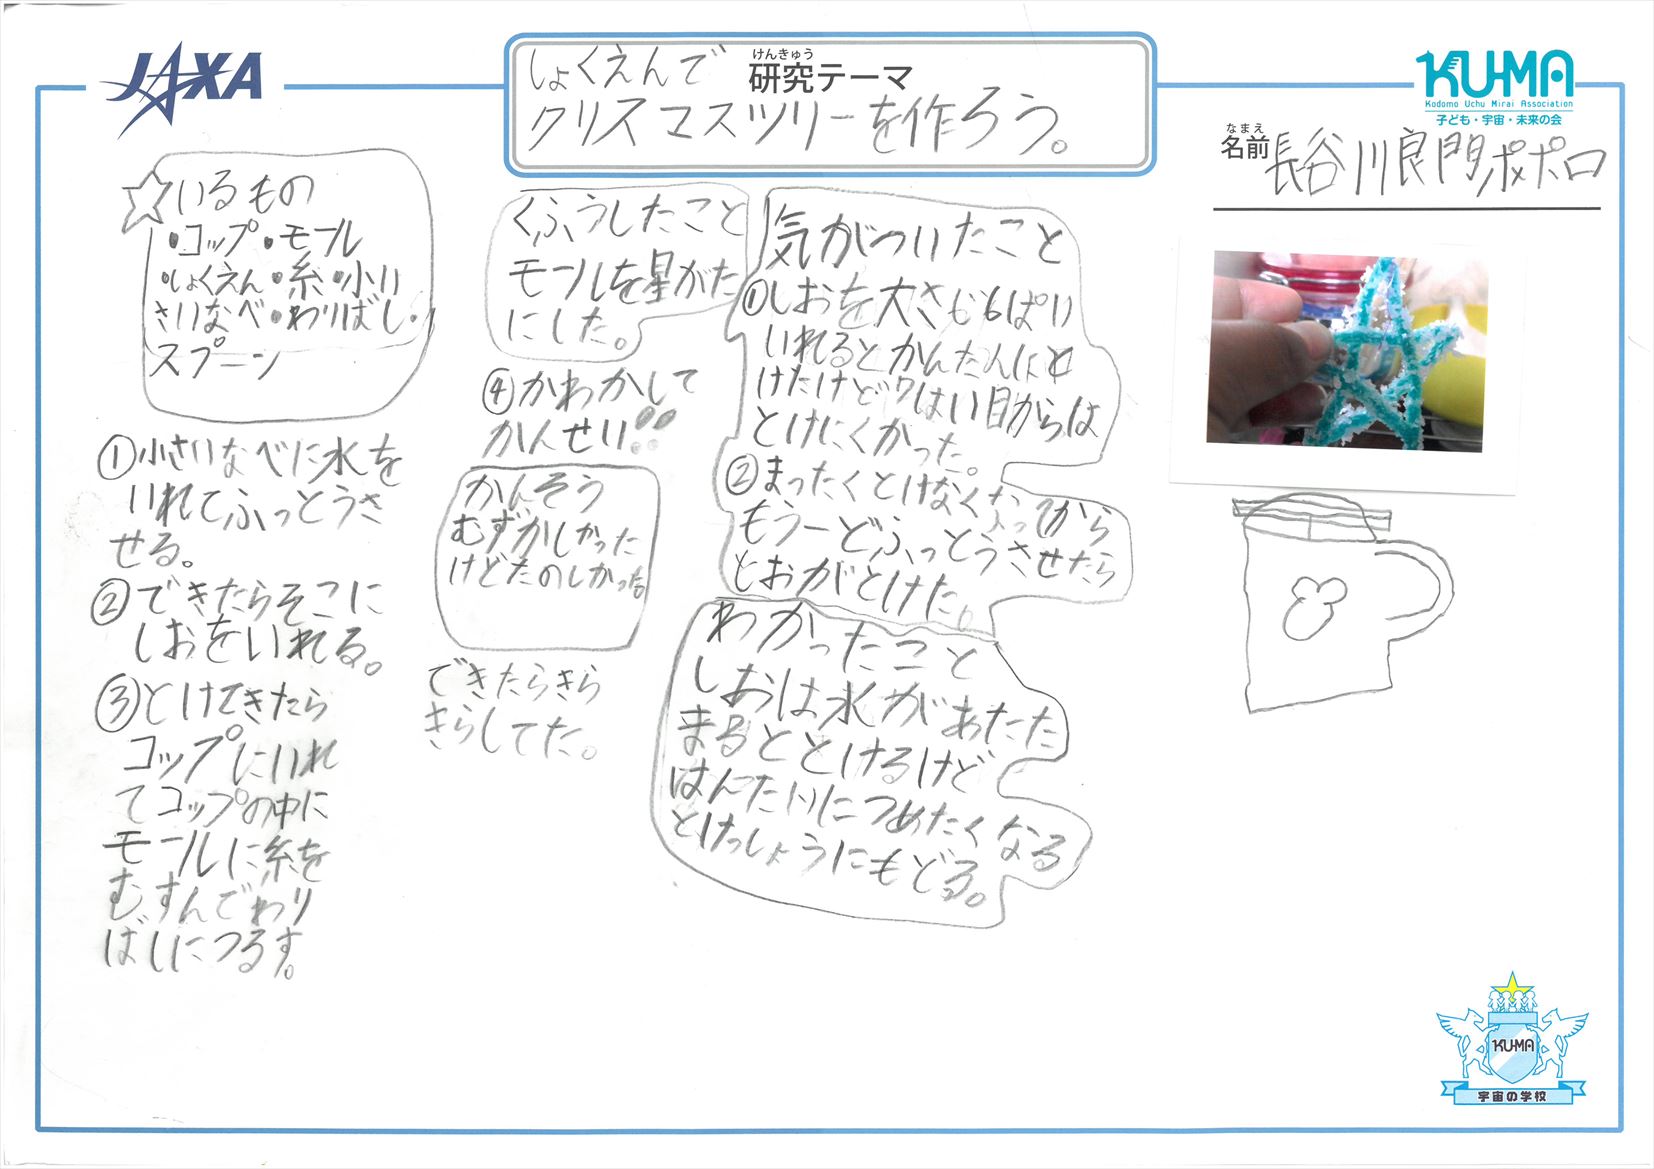 JAXA
しょくえんで
けんきゅう
研究テーマ
クリスマスツリーを作ろう。
KU-MA
Kodomo Uchu Mirai Association
子ども・宇宙・未来の会
なまえ
名前
長谷川良門ポポロ
☆いるもの
・コップ・モール
・しょくえん・糸・小い
さいなべ・わりばし・
スプーン
①小さいなべに水を
いれてふっとうさ
せる。
②できたらそこに
しおをいれる。
③とけてきたら
コップにいれ
てコップの中に
モールに糸を
むすんでわり
ばしにつるす。
くふうしたこと
モールを星がた
にした。
④かわかして
かんせい!!
かんそう
むずかしかった
けどたのしかった。
できたらきら
きらしてた。
気がついたこと
①しおを大さじ6ぱい
いれるとかんたんにと
けたけど7はい目からは
とけにくかった。
②まったくとけなくなってから
もう一どふっとうさせたら
とおがとけた。
わかったこと
しおは水があたた
まるととけるけど
はんたいにつめたくなる
とけっしょうにもどる。
KU-MA
宇宙の学校